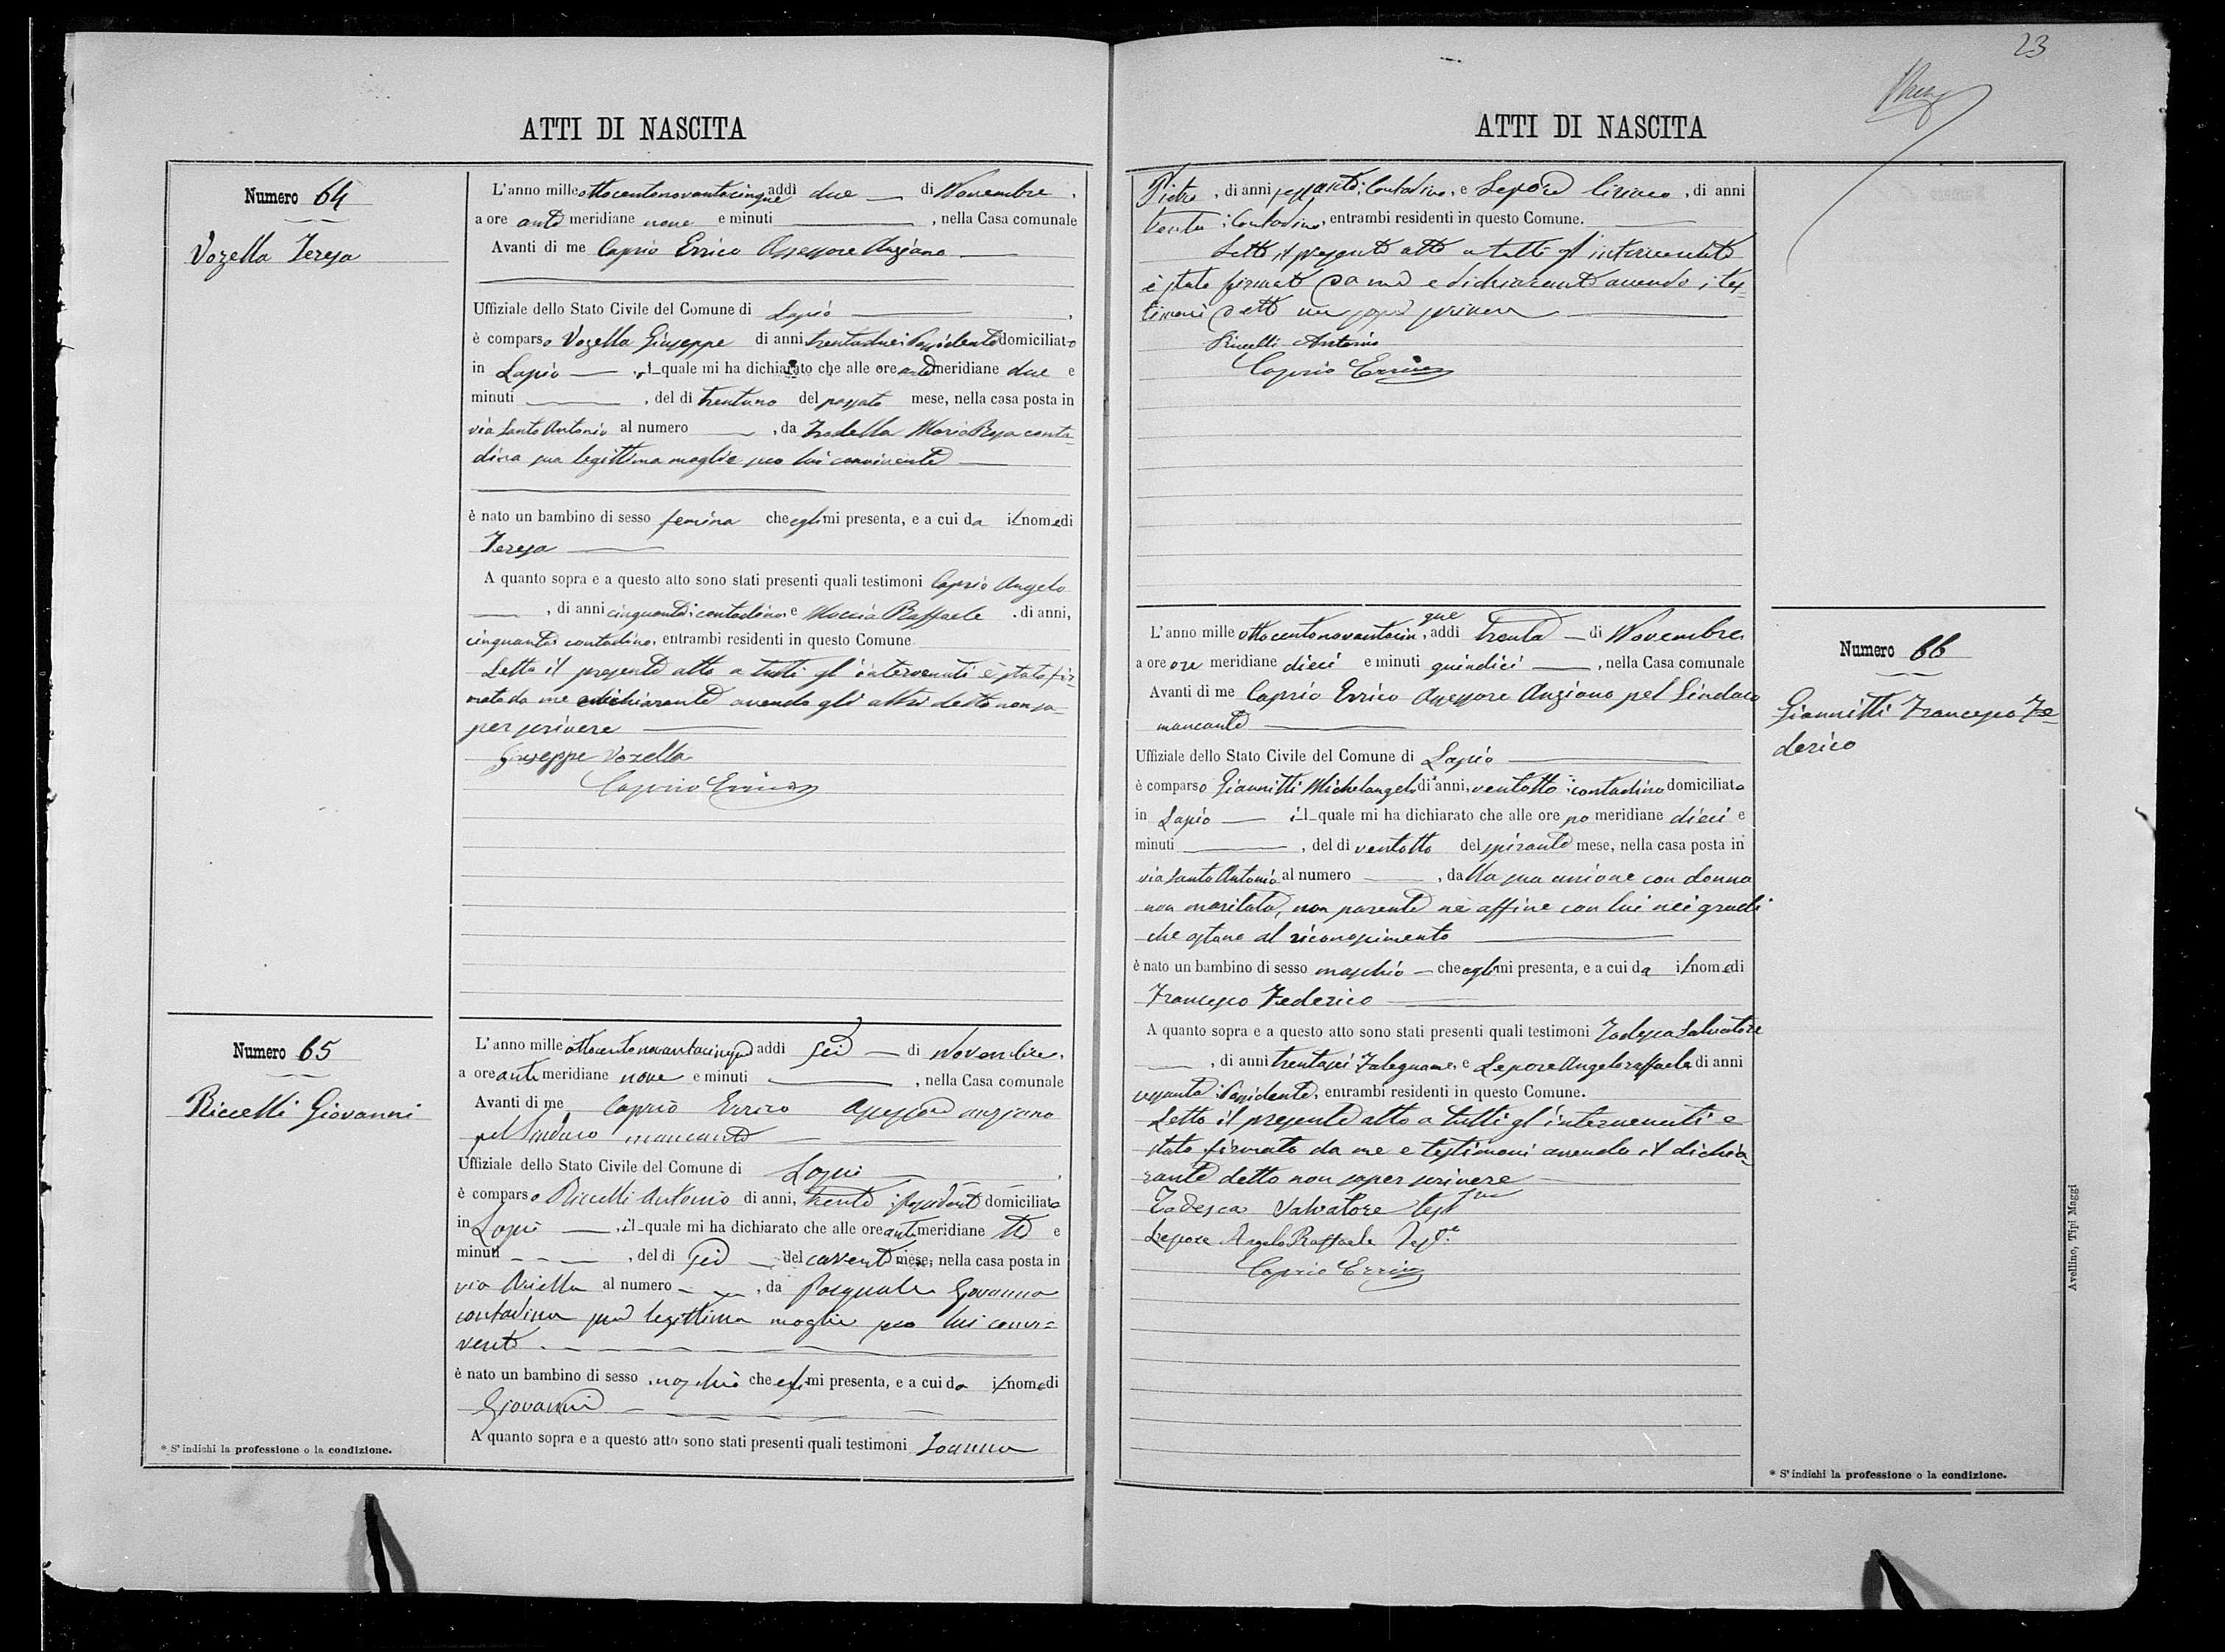 23
ATTI DI NASCITA
Numero 64
Vozella Teresa
L'anno mille ottocentonovantacinque addì due di Novembre,
a ore ante meridiane nove e minuti , nella Casa comunale
Avanti di me Caprio Errico Assessore Anziano
Uffiziale dello Stato Civile del Comune di Lapio
è comparso Vozella Giuseppe di anni trentadue; Possidente domiciliato
in Lapio , il quale mi ha dichiarato che alle ore ante meridiane due e
minuti , del dì trentuno del passato mese, nella casa posta in
via Santo Antonio al numero , da Maria Rosa conta=
dina sua legittima moglie seco lui convivente
è nato un bambino di sesso femina che egli mi presenta, e a cui da il nome di
Teresa
A quanto sopra e a questo atto sono stati presenti quali testimoni Caprio Angelo
, di anni cinquanta; contadino, e Moccia Raffaele , di anni,
cinquanta; contadino, entrambi residenti in questo Comune
Letto il presente atto a tutti gl'intervenuti è stato fir=
mato da me e dichiarante avendo gli altri detto non sa=
per scrivere
Giuseppe Vozella
Caprio Errico
Numero 65
Riccelli Giovanni
L'anno mille ottocentonovantacinque addì sei di Novembre,
a ore anti meridiane nove e minuti , nella Casa comunale
Avanti di me Caprio Errico Assessore anziano
pel Sindaco mancante
Uffiziale dello Stato Civile del Comune di Lapio
è comparso Riccelli Antonio di anni, trenta; possidente domiciliato
in Lapio , il quale mi ha dichiarato che alle ore anti meridiane tre e
minuti , del dì sei del corrente mese, nella casa posta in
via Ariella al numero , da Pasquale Giovanna
contadina sua legittima moglie seco lui convi=
vente
è nato un bambino di sesso maschio che egli mi presenta, e a cui da il nome di
Giovanni
A quanto sopra e a questo atto sono stati presenti quali testimoni Ioanna
* S'indichi la professione o la condizione.
ATTI DI NASCITA
Pietro, di anni sessanta; Contadino, e Lepore Ciriaco, di anni
trenta; Contadino, entrambi residenti in questo Comune.
Letto il presente atto a tutti gl'intervenuti
è stato firmato da me e dichiarante avendo i tes=
timoni detto non saper scrivere
Riccelli Antonio
Caprio Errico
L'anno mille ottocentonovantacinque, addì trenta di Novembre,
a ore ore meridiane dieci e minuti quindici , nella Casa comunale
Avanti di me Caprio Errico Assessore Anziano pel Sindaco
mancante
Uffiziale dello Stato Civile del Comune di Lapio
è comparso Giannitti Michelangelo di anni, ventotto; contadino domiciliato
in Lapio il quale mi ha dichiarato che alle ore po meridiane dieci e
minuti , del dì ventotto del spirante mese, nella casa posta in
via Santo Antonio al numero , dalla sua unione con donna
non maritata, non parente nè affine con lui nei gradi
che ostano al riconoscimento
è nato un bambino di sesso maschio che egli mi presenta, e a cui da il nome di
Francesco Federico
A quanto sopra e a questo atto sono stati presenti quali testimoni Tadesca Salvatore
, di anni trentasei Falegname, e Lepore Angeloraffaele di anni
sessanta; Possidente, entrambi residenti in questo Comune.
Letto il presente atto a tutti gl'intervenuti è
stato firmato da me e testimoni avendo il dichia=
rante detto non saper scrivere
Tadesca Salvatore test
Lepore Angelo Raffaele Tes.e
Caprio Errico
Numero 66
Giannitti Francesco Fe=
derico
* S'indichi la professione o la condizione.
Avellino, Tipi Maggi